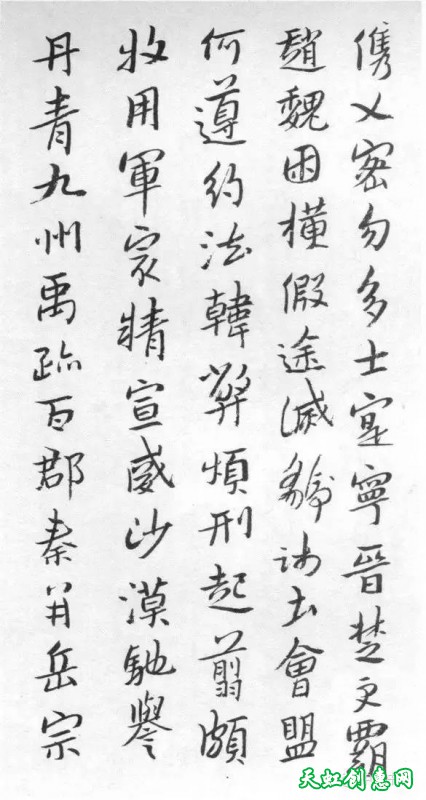 儁乂密勿多士寔寧晉楚更霸
趙魏困橫假途滅虢踐土會盟
何遵約法韓弊煩刑起翦頗
牧用軍最精宣威沙漠馳譽
丹青九州禹跡百郡秦并岳宗
天虹创意网